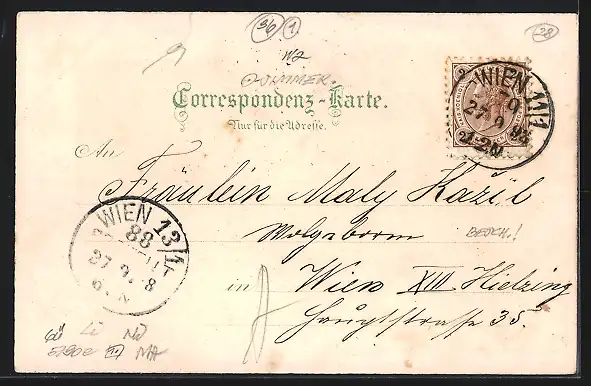 36 1 28
W2
DUMMER.
Correspondenz-Karte.
Nur für die Adresse.
WIEN 1/1
27 9 98
1-2N
An
Fräulein Maly Kazil
Wolgeborn
BESCH.!
WIEN 13/1
88
27 9 8
in Wien XIII Hietzing
Hauptstrasse 35.